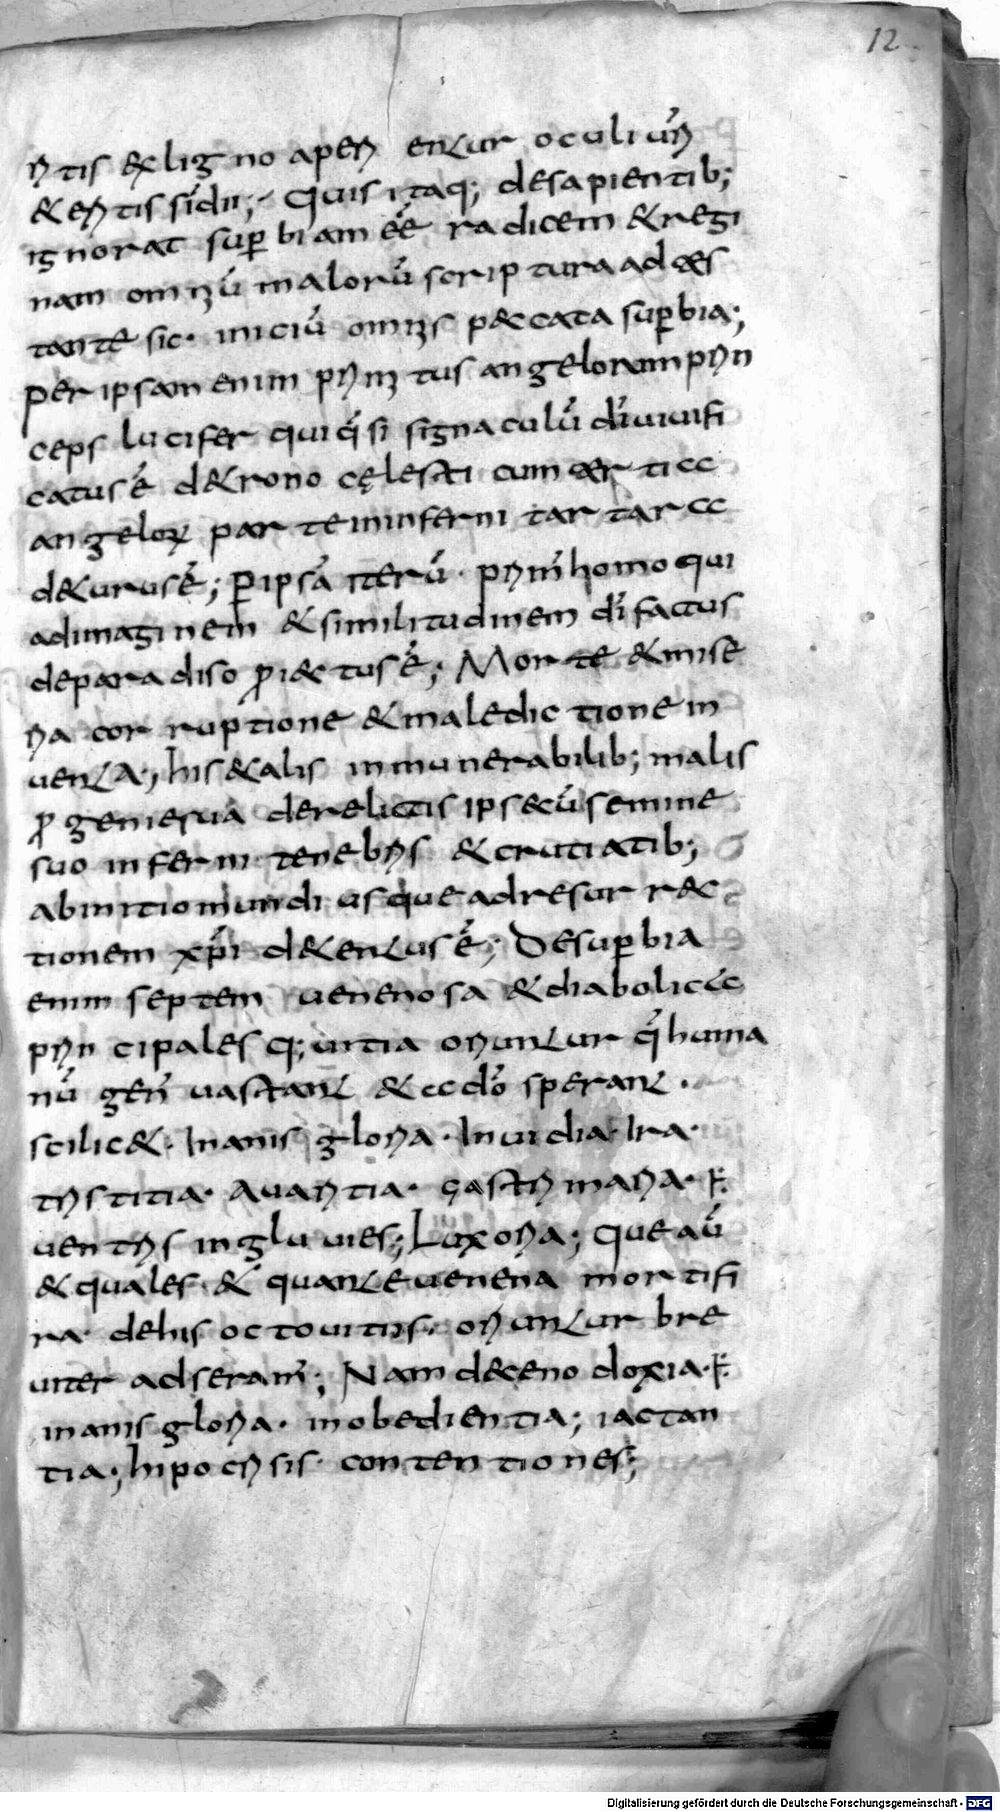 12
ritis & ligno aperientur oculi uri
& eritis sic dii; Quis itaq; de sapientib;
ignorat sup̱biam eē radicem & regi
nam omniū malorū scriptura ad tes
tante sic. iniciū omnis peccata sup̱bia;
Per ipsam enim primitus angelorum prin
ceps lucifer qui q̄si signaculū dī uiuifi
catus ē de trono cęlesti cum certi cc
angeloꝝ parte in inferni tartarcc
detrusus ē; P̱ ipsā iterū prim̄ homo qui
ad imaginem & similitudinem dī factus
de paradiso ꝓiectus ē; Morte & mise
ria corruptione & maledictione in
uenta; his & alis innumerabilib; malis
ꝓgenie sua derelictis ipse cū semine
suo inferni tenebris & crutiatib;
ab initio mundi usque ad resurrec
tionem xp̄i detentus ē; De sup̱bia
enim septem uenenosa & diabolicc
principales q; uitia oriuntur q̄ huma
nū gen̄ uastant & cc dō sperant.
scilic& . Inanis gloria . Inuidia . Ira .
tristitia . Auaritia . gastrimaria . ē
uentris ingluuies; Luxoria; Que aū
& quales & quante uenena mortifi
ra de his octo uitiis oriuntur bre
uiter adseram̄; Nam de cenodoxia . ē
inanis gloria . inobedientia; iactan
tia; hipocrisis contentiones;
Digitalisierung gefördert durch die Deutsche Forschungsgemeinschaft - DFG